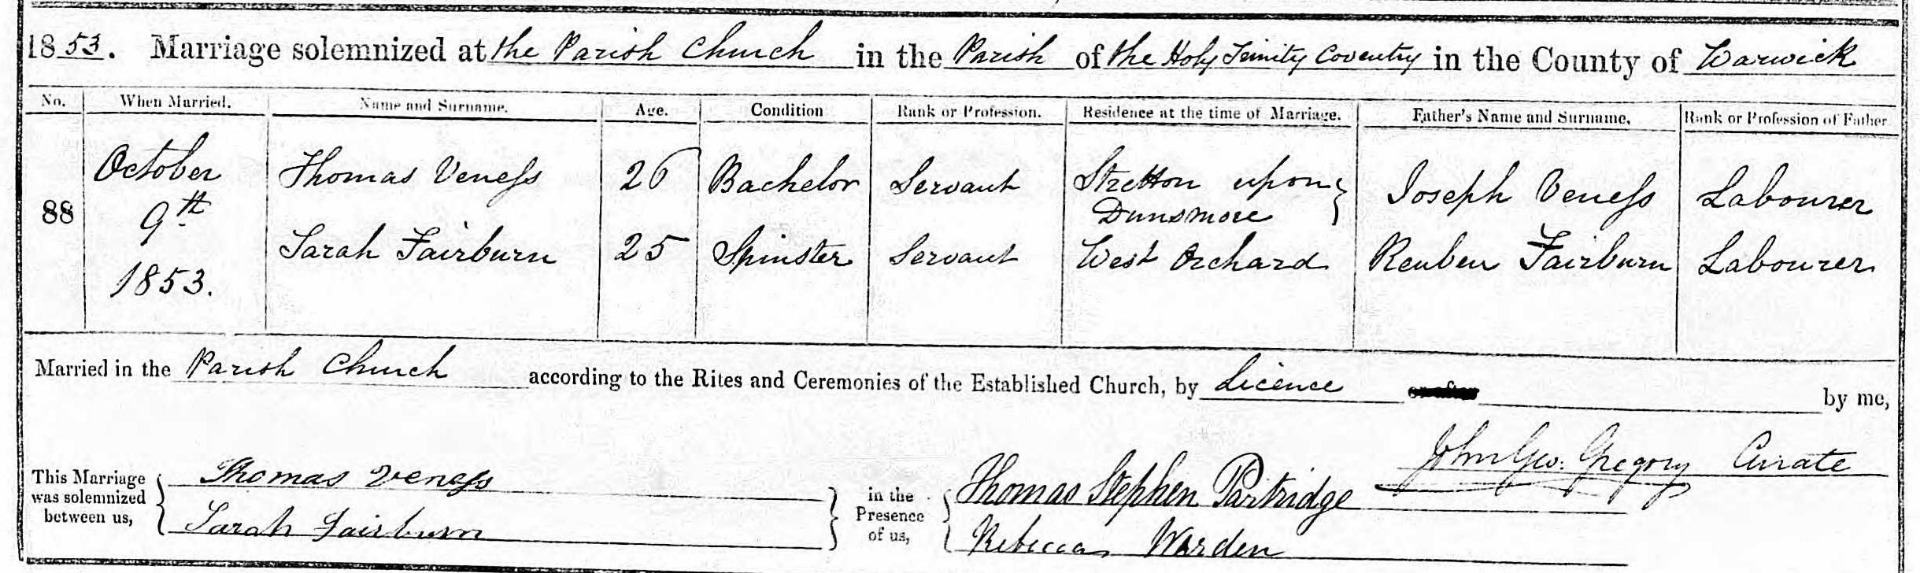 1853. Marriage solemnized at the Parish Church in the Parish of the Holy Trinity Coventry in the County of Warwick
No. When Married. Name and Surname. Age. Condition Rank or Profession. Residence at the time of Marriage. Father's Name and Surname. Rank or Profession of Father.
88 October 9th 1853.
Thomas Veness 26 Bachelor Servant Stretton upon Dunsmore Joseph Veness Labourer
Sarah Fairburn 25 Spinster Servant West Orchard Reuben Fairburn Labourer
Married in the Parish Church according to the Rites and Ceremonies of the Established Church, by Licence or after by me,
John Geo. Gregory Curate
This Marriage was solemnized between us,
Thomas Veness
Sarah Fairburn
in the Presence of us,
Thomas Stephen Partridge
Rebecca Warden